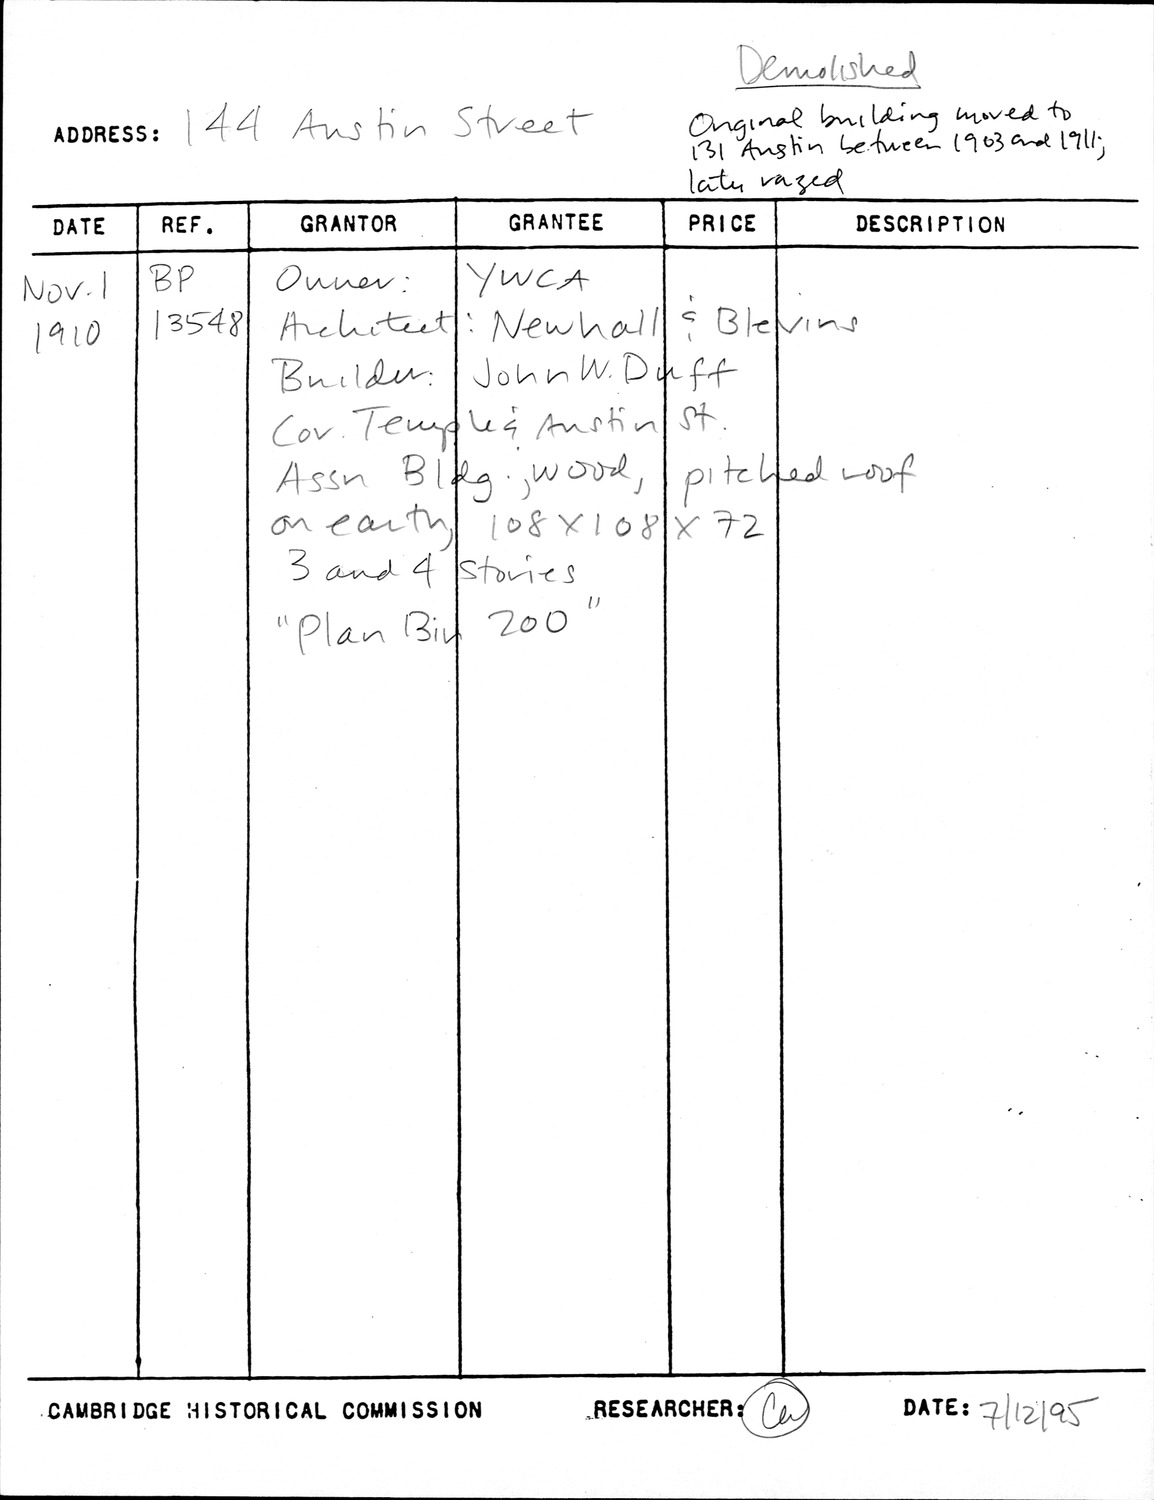 Demolished
ADDRESS: 144 Austin Street
Original building moved to
131 Austin between 1903 and 1911;
later razed
DATE REF. GRANTOR GRANTEE PRICE DESCRIPTION
Nov. 1 BP Owner: YWCA
1910 13548 Architect: Newhall & Blevins
Builder: John W. Duff
Cor. Temple & Austin St.
Assn Bldg.; wood, pitched roof
on earth, 108 X 108 X 72
3 and 4 stories
"Plan Bin 200"
CAMBRIDGE HISTORICAL COMMISSION RESEARCHER: DATE: 7/12/95